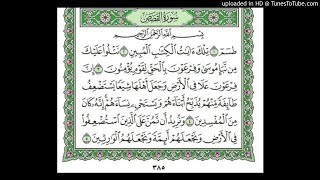 uploaded in HD @ TunesToTube.com
سُورَةُ القَصَصِ
بِسْمِ اللَّهِ الرَّحْمَٰنِ الرَّحِيمِ
طسٓمٓ ١ تِلْكَ ءَايَٰتُ الْكِتَٰبِ الْمُبِينِ ٢ نَتْلُوا۟ عَلَيْكَ
مِن نَّبَإِ مُوسَىٰ وَفِرْعَوْنَ بِالْحَقِّ لِقَوْمٍ يُؤْمِنُونَ ٣ إِنَّ
فِرْعَوْنَ عَلَا فِي الْأَرْضِ وَجَعَلَ أَهْلَهَا شِيَعًا يَسْتَضْعِفُ
طَآئِفَةً مِّنْهُمْ يُذَبِّحُ أَبْنَآءَهُمْ وَيَسْتَحْيِۦ نِسَآءَهُمْ إِنَّهُۥ كَانَ
مِنَ الْمُفْسِدِينَ ٤ وَنُرِيدُ أَن نَّمُنَّ عَلَى الَّذِينَ اسْتُضْعِفُوا۟
فِي الْأَرْضِ وَنَجْعَلَهُمْ أَئِمَّةً وَنَجْعَلَهُمُ الْوَٰرِثِينَ ٥
٣٨٥